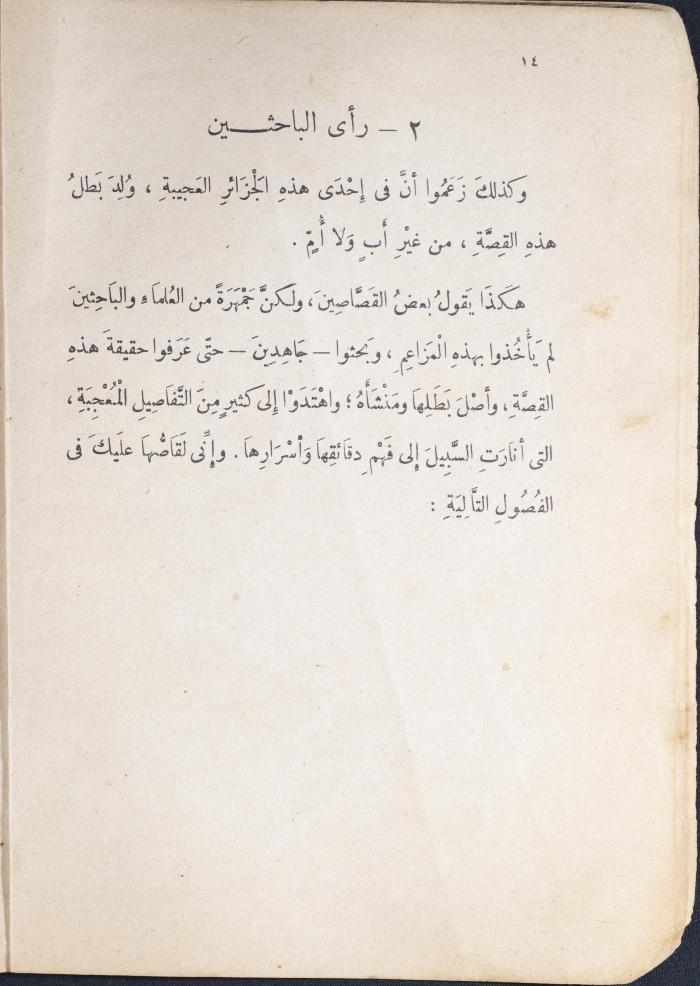 ١٤
٢ – رأى الباحثـــين
وكذلكَ زَعَمُوا أنَّ فى إِحْدَى هذهِ الْجَزَائرِ العَجيبةِ ، وُلِدَ بَطلُ
هذهِ القِصَّةِ ، من غيْرِ أَبٍ وَلا أُمٍّ .
هكَذَا يَقولُ بعضُ القَصَّاصِينَ، ولكنَّ جَمْهَرَةً من العُلماءِ والبَاحِثينَ
لم يَأْخُذوا بهذهِ الْمَزَاعِمِ ، وَبَحثوا – جَاهِدِينَ – حتّى عَرَفوا حقيقةَ هذهِ
القِصَّةِ ، وأصْلَ بَطَلِهاَ ومَنْشَأَهُ ؛ واهْتَدَوْا إلى كثيرٍ مِنَ التَّفَاصِيلِ الْمُعْجِبَةِ ،
التى أنارَتِ السَّبِيلَ إلى فَهْمِ دقَائقِهاَ وَأسْرَارِهاَ . وإنِّى لَقَاصُّهاَ علَيكَ فى
الفُصُولِ التَّالِيَةِ :